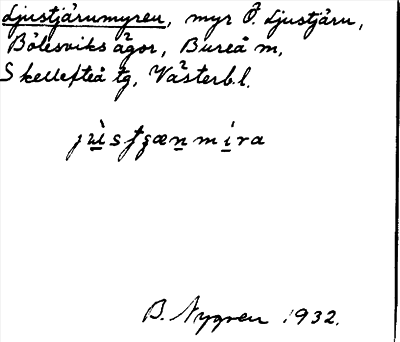 Ljustjärnmyren, myr Ö. Ljustjärn,
Bölesviks ägor, Bureå m,
Skellefteå tg, Västerb.l.
B. Nygren 1932.